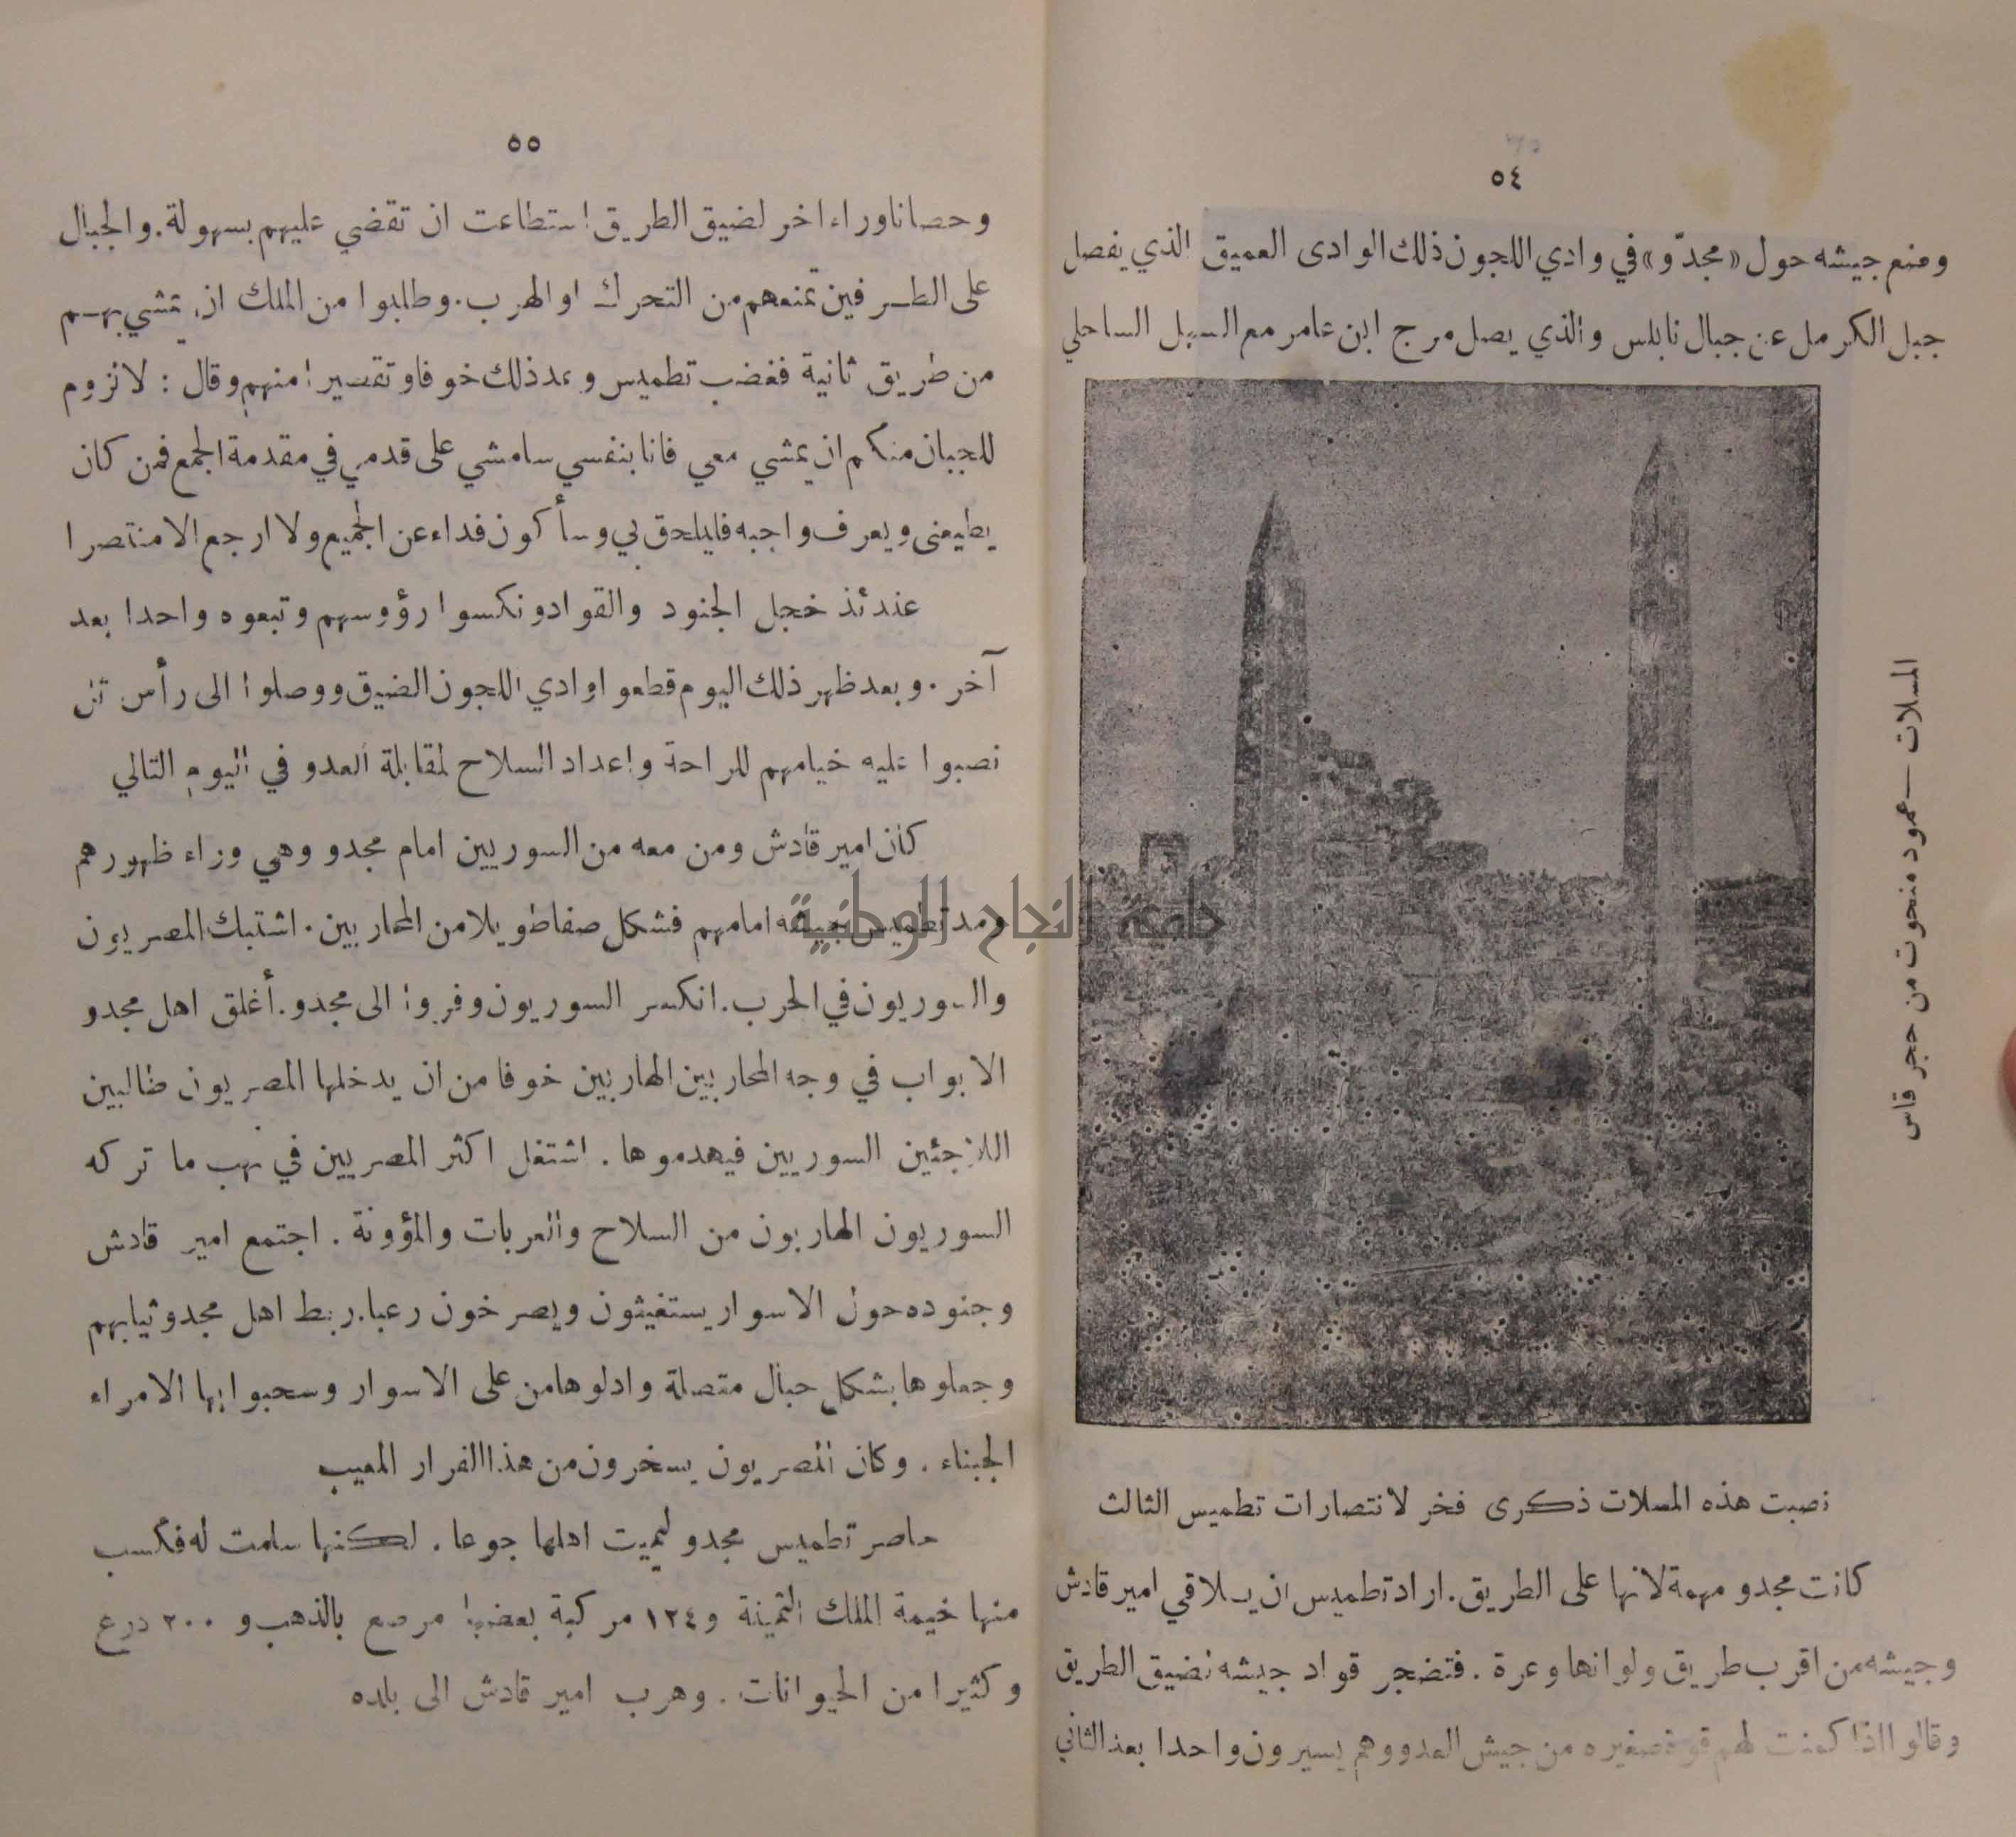 ٥٤
ومنع جيشه حول «مجدّو» في وادي اللجون ذلك الوادى العميق الذي يفصل
جبل الكرمل عن جبال نابلس والذي يصل مرج ابن عامر مع السهل الساحلي
المسلات — عمود منحوت من حجر قاس
نصبت هذه المسلات ذكرى فخر لانتصارات تطميس الثالث
كانت مجدو مهمة لانها على الطريق. اراد تطميس ان يلاقي امير قادش
وجيشه من اقرب طريق ولو انها وعرة. فتضجر قواد جيشه لضيق الطريق
وقالوا اذا كمنت لهم قوة صغيره من جيش العدو وهم يسيرون واحدا بعد الثاني
٥٥
وحصانا وراء اخر لضيق الطريق استطاعت ان تقضي عليهم بسهولة. والجبال
على الطرفين تمنعهم من التحرك او الهرب. وطلبوا من الملك ان يمشي بهم
من طريق ثانية فغضب تطميس وعد ذلك خوفا وتقصيرا منهم وقال: لا لزوم
للجبان منكم ان يمشي معي فانا بنفسي سامشي على قدمي في مقدمة الجمع فمن كان
يطيعنى ويعرف واجبه فليلحق بي وسأكون فداء عن الجميع ولا ارجع الا منتصرا
عندئذ خجل الجنود والقواد ونكسوا رؤوسهم وتبعوه واحدا بعد
آخر. وبعد ظهر ذلك اليوم قطعوا وادي اللجون الضيق ووصلوا الى رأس تل
نصبوا عليه خيامهم للراحة واعداد السلاح لمقابلة العدو في اليوم التالي
كان امير قادش ومن معه من السوريين امام مجدو وهي وراء ظهورهم
ومد تطميس جيشه امامهم فشكل صفا طويلا من المحاربين. اشتبك المصريون
والسوريون في الحرب. انكسر السوريون وفروا الى مجدو. أغلق اهل مجدو
الابواب في وجه المحاربين الهاربين خوفا من ان يدخلها المصريون طالبين
اللاجئين السوريين فيهدموها. اشتغل اكثر المصريين في نهب ما تركه
السوريون الهاربون من السلاح والعربات والمؤونة. اجتمع امير قادش
وجنوده حول الاسوار يستغيثون ويصرخون رعبا. ربط اهل مجدو ثيابهم
وجعلوها بشكل حبال متصلة وادلوها من على الاسوار وسحبوا بها الامراء
الجبناء. وكان المصريون يسخرون من هذا الفرار المعيب
حاصر تطميس مجدو ليميت اهلها جوعا. لكنها سلمت له فكسب
منها خيمة الملك الثمينة و ١٢٤ مركبة بعضها مرصع بالذهب و ٢٠٠ درع
وكثيرا من الحيوانات. وهرب امير قادش الى بلده
جامعة النجاح الوطنية